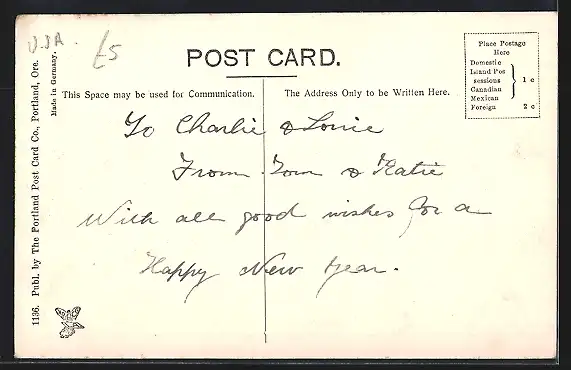 U.S.A. £5
POST CARD.
This Space may be used for Communication.
The Address Only to be Written Here.
Place Postage
Here
Domestic
Island Pos
sessions
Canadian
Mexican
1 c
Foreign 2 c
To Charlie & Louie
From Tom & Katie
With all good wishes for a
Happy New Year.
1136. Publ. by The Portland Post Card Co., Portland, Ore.
Made in Germany.